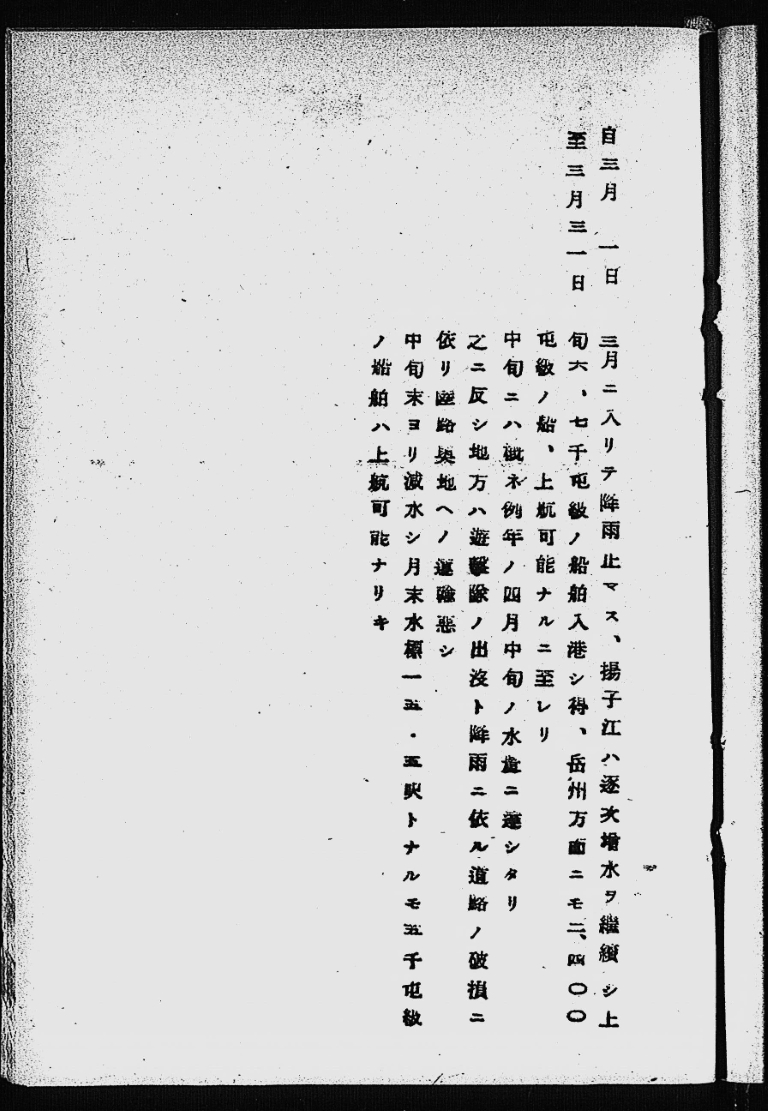 自三月　一日
至三月三一日
三月ニ入リテ降雨止マス、揚子江ハ逐次増水ヲ繼續シ上
旬六、七千屯級ノ船舶入港シ得、岳州方面ニモ二、四〇〇
屯級ノ船、上航可能ナルニ至レリ
中旬ニハ概ネ例年ノ四月中旬ノ水量ニ達シタリ
之ニ反シ地方ハ遊擊隊ノ出沒ト降雨ニ依ル道路ノ破損ニ
依リ陸路奧地ヘノ運輸惡シ
中旬末ヨリ減水シ月末水標一五・五呎トナルモ五千屯級
ノ船舶ハ上航可能ナリキ